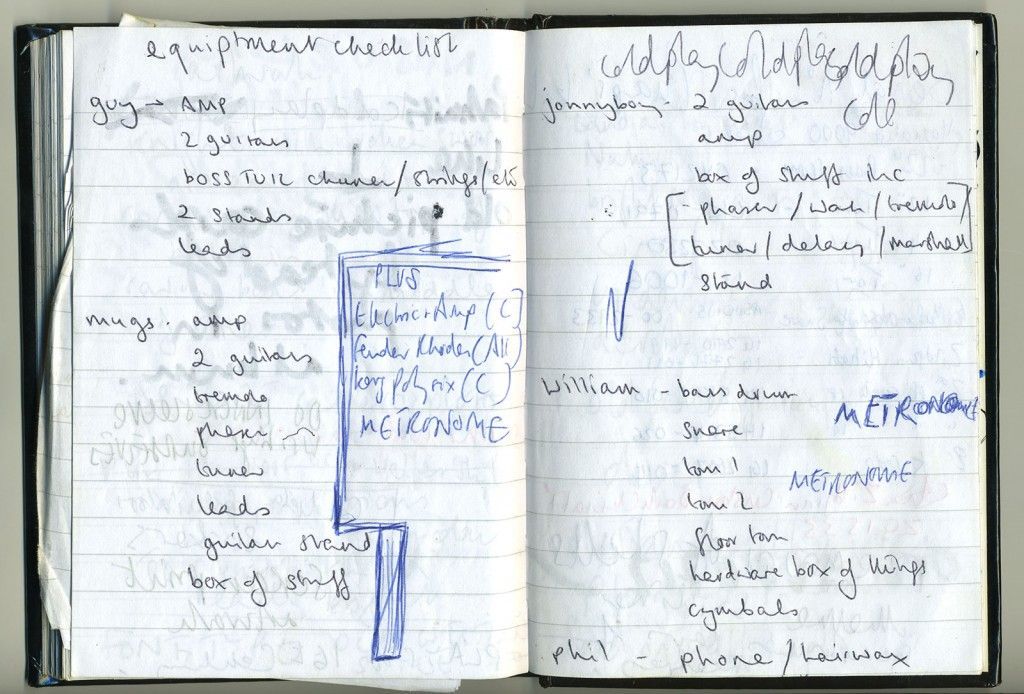 equiptment checklist
guy → AMP
2 guitars
BOSS TU12 chuner/strings/etc
2 stands
leads
mugs. amp
2 guitars
tremolo
phaser
tuner
leads
guitar stand
box of stuff
PLUS
Electric + Amp (C)
fender Rhodes (All)
korg polysix (C)
METRONOME
coldplay coldplay coldplay
cole
jonnyboy - 2 guitars
amp
box of stuff inc
[- phaser / wah / tremolo]
[tuner / delay / marshall]
stand
William - bass drum
snare
tom 1
tom 2
floor tom
hardware box of things
cymbals
METRONOME
METRONOME
phil - phone / hairwax